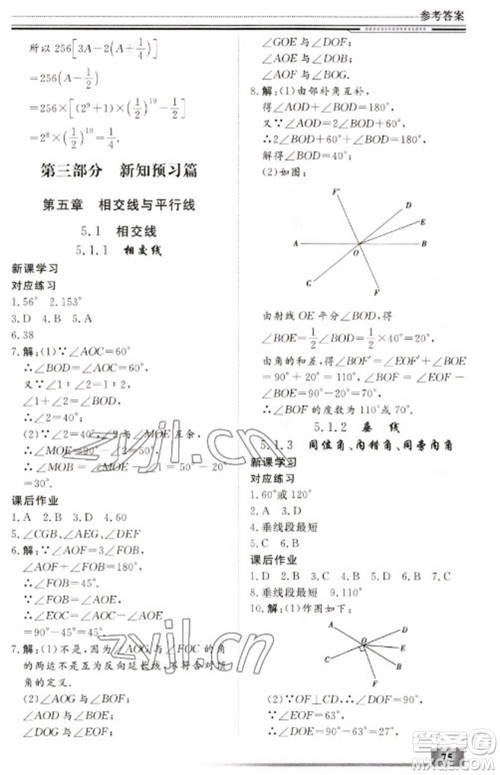 参考答案
所以256[3A-2(A+1/4)]
=256(A-1/2)
=256×[(2⁹+1)×(1/2)¹⁹-1/2]
=2⁸×(1/2)¹⁰=1/4.
第三部分 新知预习篇
第五章 相交线与平行线
5.1 相交线
5.1.1 相交线
新课学习
对应练习
1.56° 2.153°
3.D 4.B 5.A
6.38
7.解:(1)∵∠AOC=60°
∴∠BOD=∠AOC=60°
又∵∠1:∠2=1:2,
∠1+∠2=60°
∴∠2=40°;
(2)∵∠2=40°与∠MOE互余,
∴∠MOE=90°-∠2=50°,
∴∠MOB=∠MOE-∠1=50°-20°
=30°.
课后作业
1.A 2.B 3.D 4.D
5.∠CGB,∠AEG,∠DEF
6.解:∵∠AOF=3∠FOB,
∠AOF+∠FOB=180°,
∴∠FOB=45°,
∴∠EOC=∠AOC-∠FOB
=90°-45°=45°.
7.解:(1)不是,因为∠COF的角
的两边不是互为反向延长线,不符合对顶
角的定义.
(2)∠AOG与∠BOF,
∠GOE与∠DOF;
∠AOF与∠BOG.
8.解:(1)由邻补角互补,
得∠AOD+∠BOD=180°,
又∵∠AOD-∠BOD=100°,
∴2∠BOD=80°,
解得∠BOD=40°;
(2)如图:
E
D
A
O
B
C
F
由射线OE平分∠BOD,得
∠BOE=1/2∠BOD=1/2×40°=20°,
由角的和差,得∠BOF'=∠EOF'+
∠BOE=90°+20°=110°,
∠BOF=∠EOF-∠BOE=90°-20°
=70°.
∴∠BOF的度数为110°或70°.
5.1.2 垂线
5.1.3 同位角、内错角、同旁内角
新课学习
对应练习
1.60°或120°
2.B 3.A
4.垂线段最短
5.C 6.B
课后作业
1.D 2.B 3.C 4.D 5.B 6.C 7.B
8.垂线段最短 9.110°
10.解:(1)作图如下,
(2)∵OF⊥CD,∴∠DOF=90°
又∵∠BOD=63°
∴∠DOE=90°-63°=27°.
75
zyjl.cn